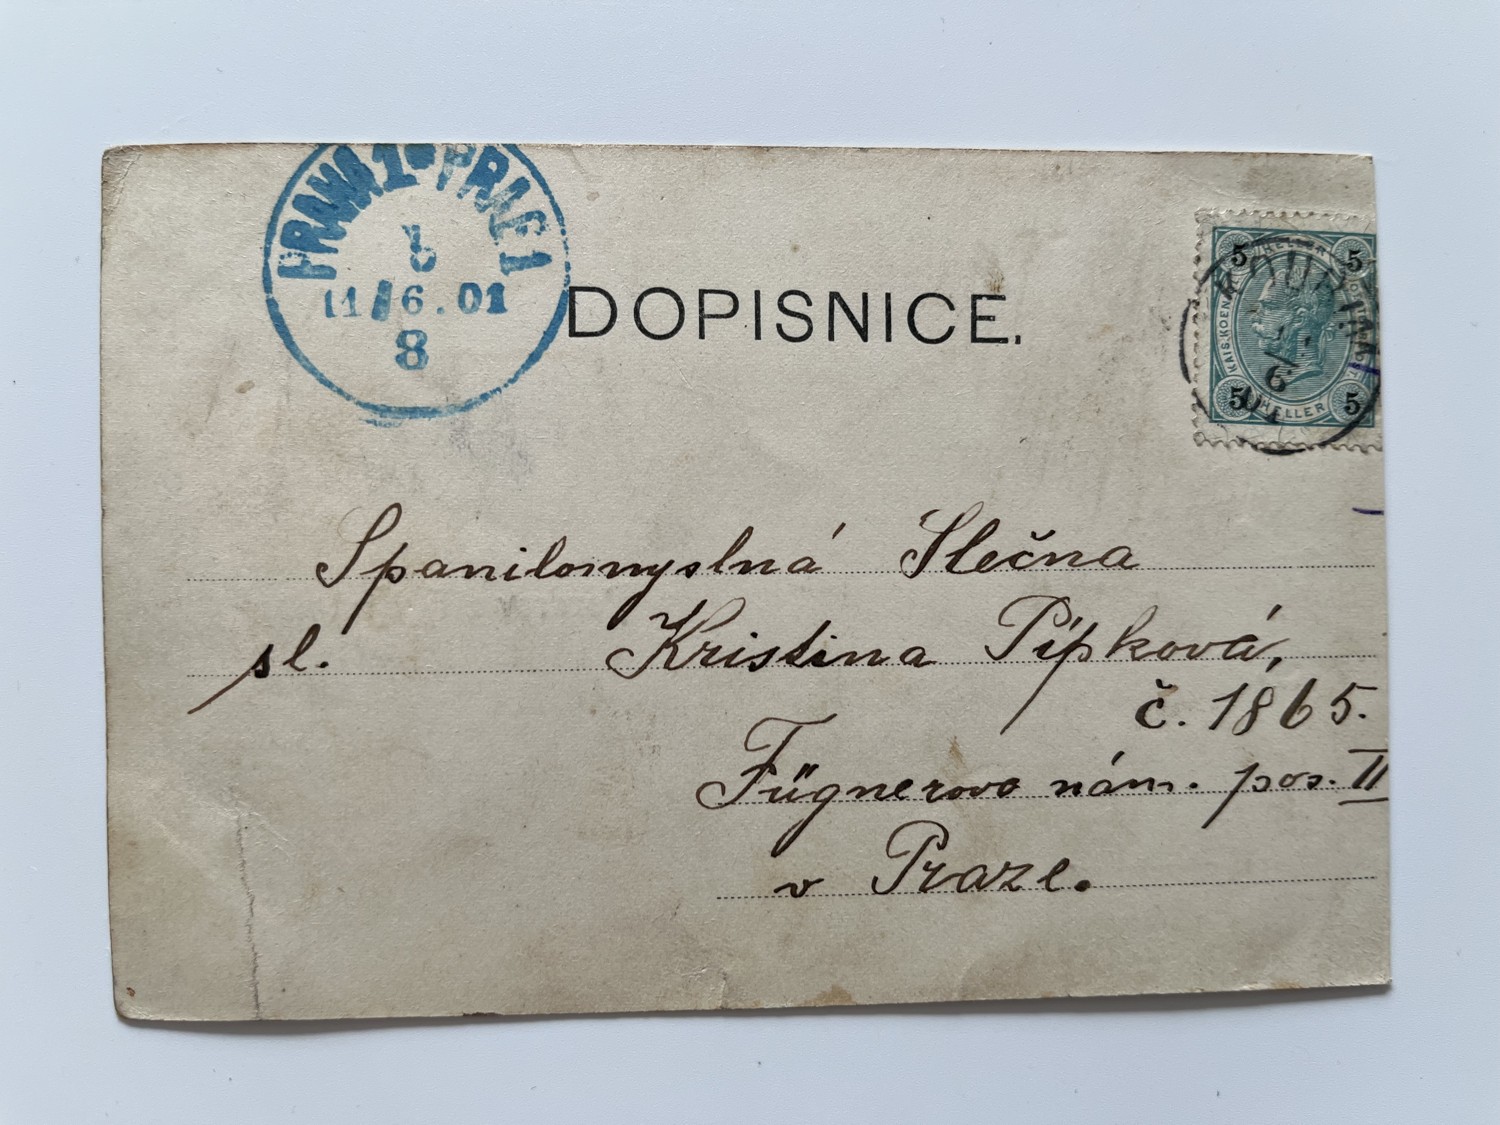 PRAHA 1 * PRAG 1
11/6.01
8
DOPISNICE.
5 HELLER 5
KAIS. KOEN
5 HELLER 5
6
Spanilomyslná Slečna
sl. Kristina Pípková,
č. 1865.
Fügnerovo nám. pos. II
v Praze.